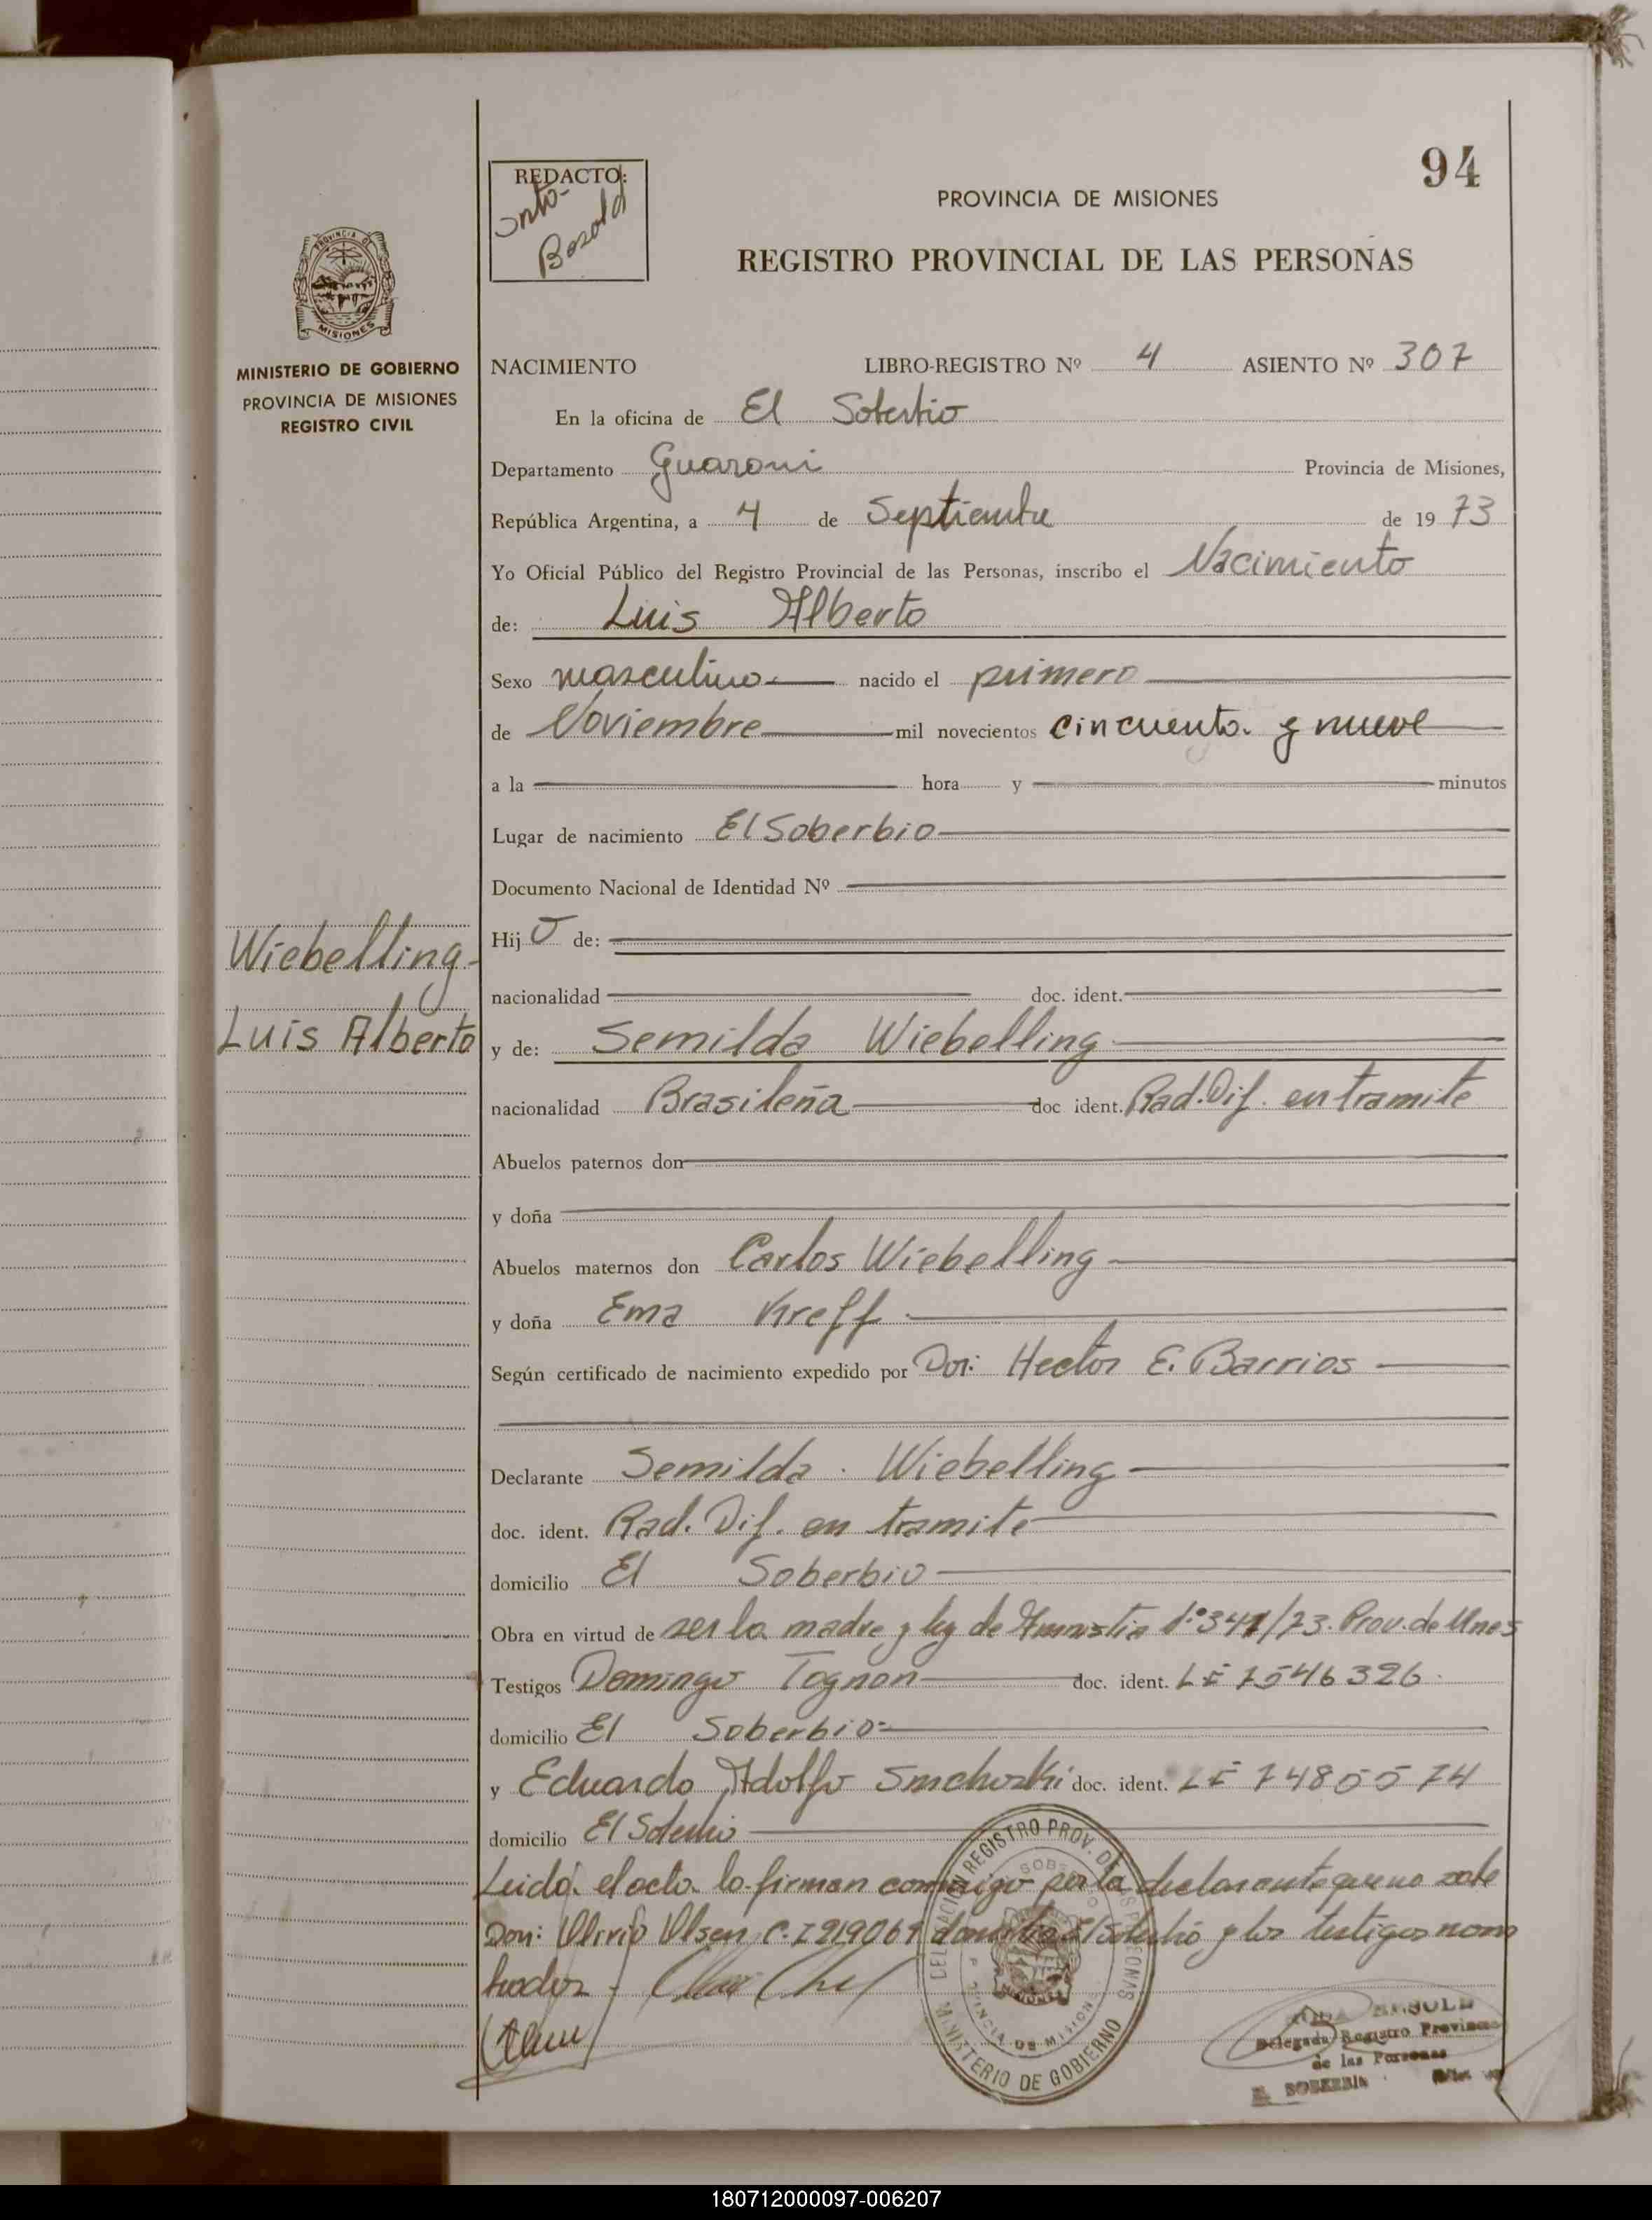 94
REDACTO:
PROVINCIA DE MISIONES
REGISTRO PROVINCIAL DE LAS PERSONAS
PROVINCIA DE
MISIONES
MINISTERIO DE GOBIERNO
PROVINCIA DE MISIONES
REGISTRO CIVIL
NACIMIENTO LIBRO-REGISTRO Nº 4 ASIENTO Nº 307
En la oficina de El Soberbio
Departamento Guarani Provincia de Misiones,
República Argentina, a 4 de Septiembre de 1973
Yo Oficial Público del Registro Provincial de las Personas, inscribo el Nacimiento
de: Luis Alberto
Sexo masculino nacido el primero
de Noviembre mil novecientos cincuenta y nueve
a la hora y minutos
Lugar de nacimiento El Soberbio
Documento Nacional de Identidad Nº
Hijo de:
Wiebelling
nacionalidad doc. ident.
Luis Alberto
y de: Semilda Wiebelling
nacionalidad Brasileña doc ident. Rad. Dif. en tramite
Abuelos paternos don
y doña
Abuelos maternos don Carlos Wiebelling
y doña Ema Kreff
Según certificado de nacimiento expedido por Dor: Hector E. Barrios
Declarante Semilda Wiebelling
doc. ident. Rad. Dif. en tramite
domicilio El Soberbio
Obra en virtud de ser la madre y ley de Amnistia Prov. de Mnes
Testigos Domingo Tognon doc. ident. LE 7546326
domicilio El Soberbio
y Eduardo Adolfo doc. ident. LE 7485574
domicilio El Soberbio
Leido el acto lo firman conmigo por la declarante que no sabe
Don: Olsen C.I 219069 domicilio El Soberbio y los testigos nom
brados
REGISTRO PROV. DE LAS PERSONAS
MINISTERIO DE GOBIERNO
Delegada Registro Provincial
de las Personas
EL SOBERBIO
180712000097-006207